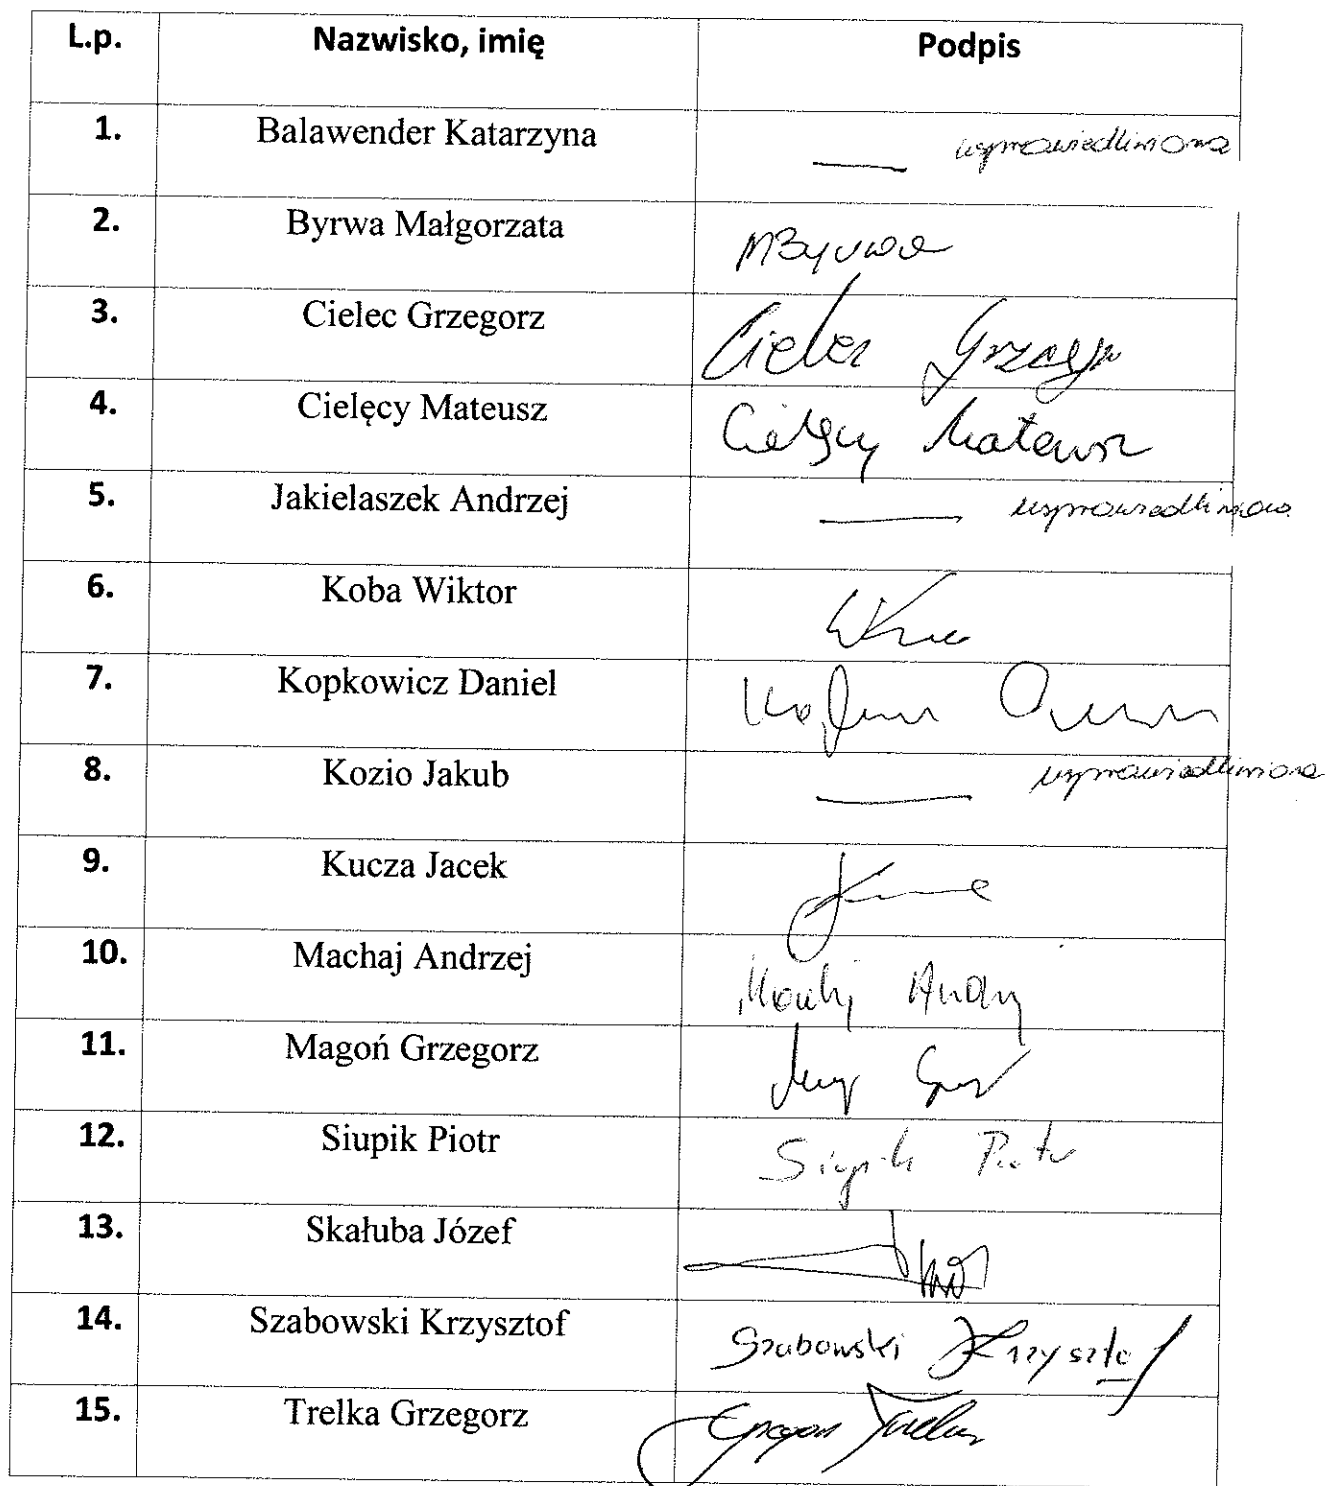 L.p. Nazwisko, imię Podpis
1. Balawender Katarzyna — usprawiedliwiona
2. Byrwa Małgorzata MByrwa
3. Cielec Grzegorz Cielec Grzegorz
4. Cielęcy Mateusz Cielęcy Mateusz
5. Jakielaszek Andrzej — usprawiedliwiona
6. Koba Wiktor
7. Kopkowicz Daniel
8. Kozio Jakub — usprawiedliwiona
9. Kucza Jacek
10. Machaj Andrzej Machaj Andrzej
11. Magoń Grzegorz
12. Siupik Piotr Siupik Piotr
13. Skałuba Józef
14. Szabowski Krzysztof Szabowski Krzysztof
15. Trelka Grzegorz Grzegorz Trelka